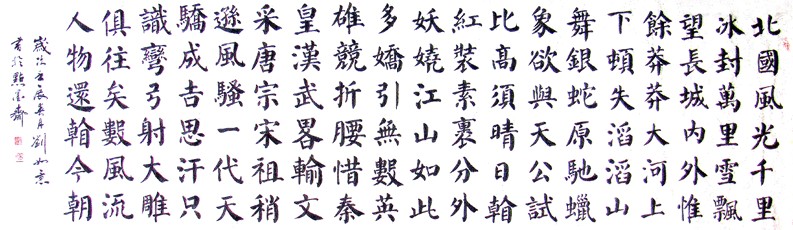 北國風光千里
冰封萬里雪飄
望長城內外惟
餘莽莽大河上
下頓失滔滔山
舞銀蛇原馳蠟
象欲與天公試
比高須晴日看
紅裝素裹分外
妖嬈江山如此
多嬌引無數英
雄競折腰惜秦
皇漢武畧輸文
采唐宗宋祖稍
遜風騷一代天
驕成吉思汗只
識彎弓射大雕
俱往矣數風流
人物還看今朝
歲次壬辰 月劉如意
書於 墨齋